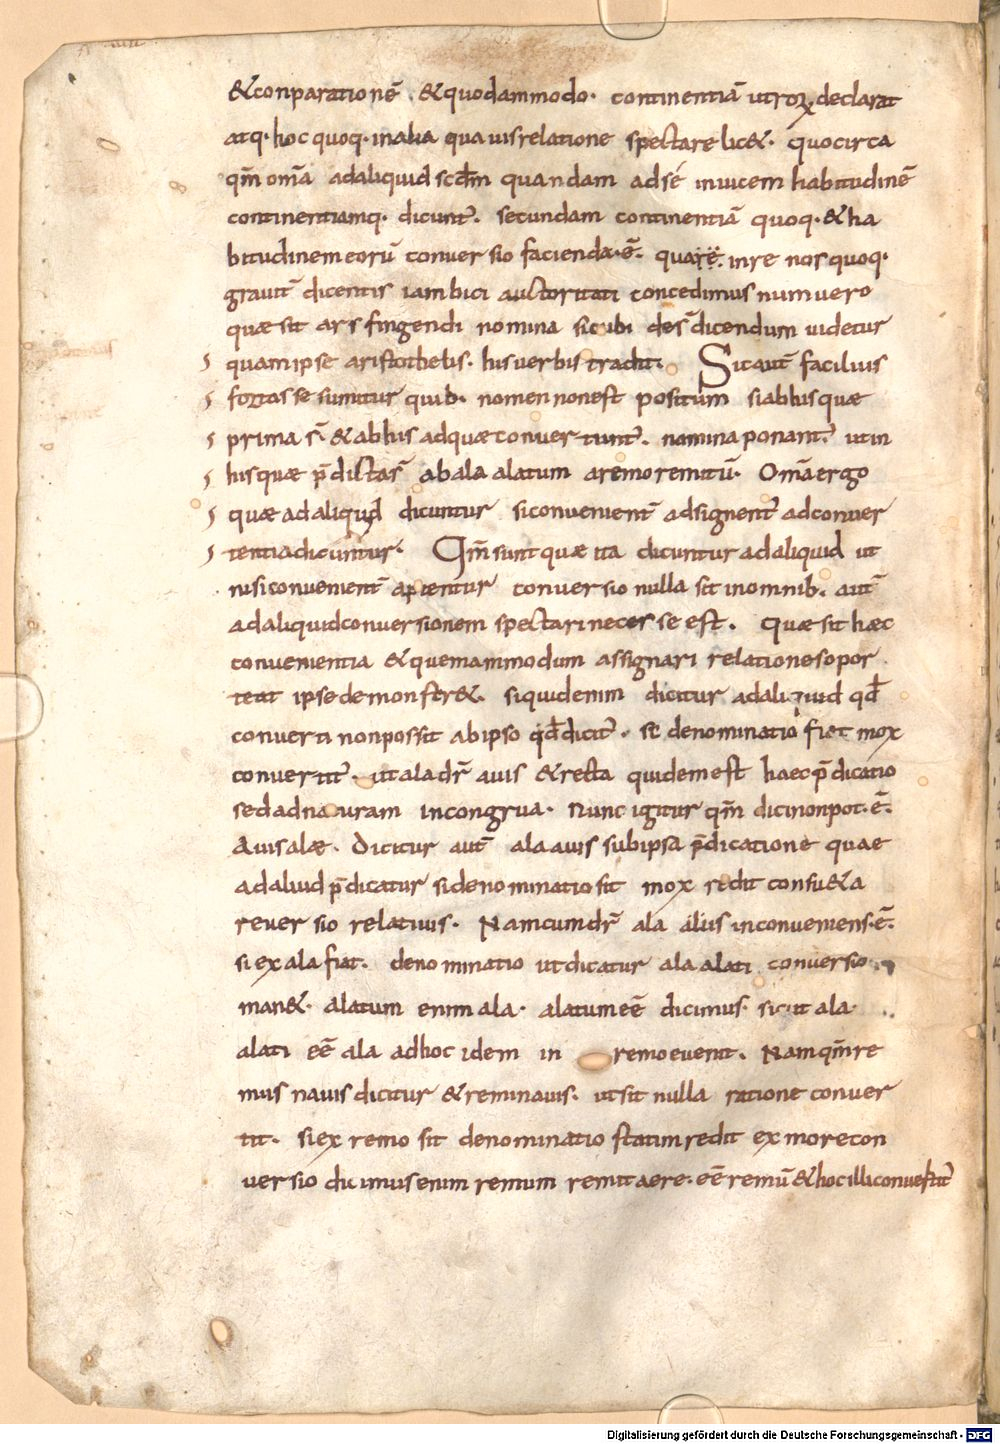 &conparationē . &quodammodo· continentiā utrorūq; declarat
atq·hoc quoq·inalia qua uisrelatione spectare lic&· quocirca
qm̄ omā adaliquid scdm quandam adsé inuicem habitudinē
continentiamq· dicunt̄. secundam continentiā quoq·&ha
bitudinem eorū conuer sio facienda·ē. quare inre nos quoq·
grauit̄ dicentis iambici auctoritati concedimus num uero
quæ sit ars fingendi nomina sicubi des̄ dicendum uidetur
quam ipse aristothelis· his uerbis tradit. Sit aut̄ facilius
fortasse sumitur quib· nomen non est positum si ab his quæ
prima s̄ & ab his ad quæ conuertunt̄. nomina ponant̄. ut in
his quæ p̄dictas̄ ab ala alatum a remo remitū· Omā ergo
quæ ad aliquid dicuntur si conuenient̄ adsignent̄ ad conuer
tentia dicuntur· Qm̄ sunt quæ ita dicuntur ad aliquid ut
nisi conuenient̄ aptentur conuersio nulla sit in omnib· aut̄
ad aliquid conuersionem spectari necesse est. Quæ sit hæc
conuenientia & quemammodum assignari relationes opor
teat ipse demonstr&. siquidenim dicitur ad aliquid qd̄
conuerti non possit ab ipso qd̄ dicit̄. se denominatio fiet mox
conuertit̄. ut ala dr̄ auis & recta quidem est haec p̄dicatio
sed ad naturam incongrua· Nunc igitur qm̄ dici non pot·ē.
Auis alæ. Dicitur aut̄ ala auis sub ipsa p̄dicatione quae
ad aliuid p̄dicatur si denominatio sit mox redit consu&a
reuersio relatiuis. Nam cum dr̄ ala alius inconueniens·ē.
si ex ala fiat. denominatio ut dicatur ala alati conuersio
man&. alatum enim ala· alatum eē dicimus. sicut ala·
alati eē ala ad hoc idem in remo euenit. Nam qm̄ re
mus nauis dicitur & remi nauis. ut sit nulla ratione conuer
tit. si ex remo sit denominatio statim redit ex more con
uersio dicimus enim remum remitaere· eē remū & hoc illi conuestit̄
Digitalisierung gefördert durch die Deutsche Forschungsgemeinschaft - DFG